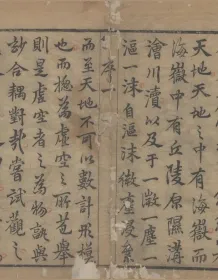 天地天地之中有海嶽而
海嶽中有丘陵原隰溝
澮川瀆以及于一微一塵一
漚一沫自漚沫微塵受氣
序一
而至天地不可以數計形模
也而揔為虛空之所苞舉
則是虛空者之為物詎與
合耦對哉嘗試觀之